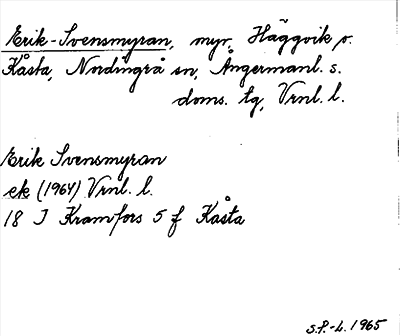 Erik-Svensmyran, myr, Häggvik o.
Kåsta, Nordingrå sn, Ångermanl. s.
doms. tg, Vrnl. l.
Erik Svensmyran
ek (1964) Vrnl. l.
18 I Kramfors 5 f Kåsta
S.P.-L. 1965